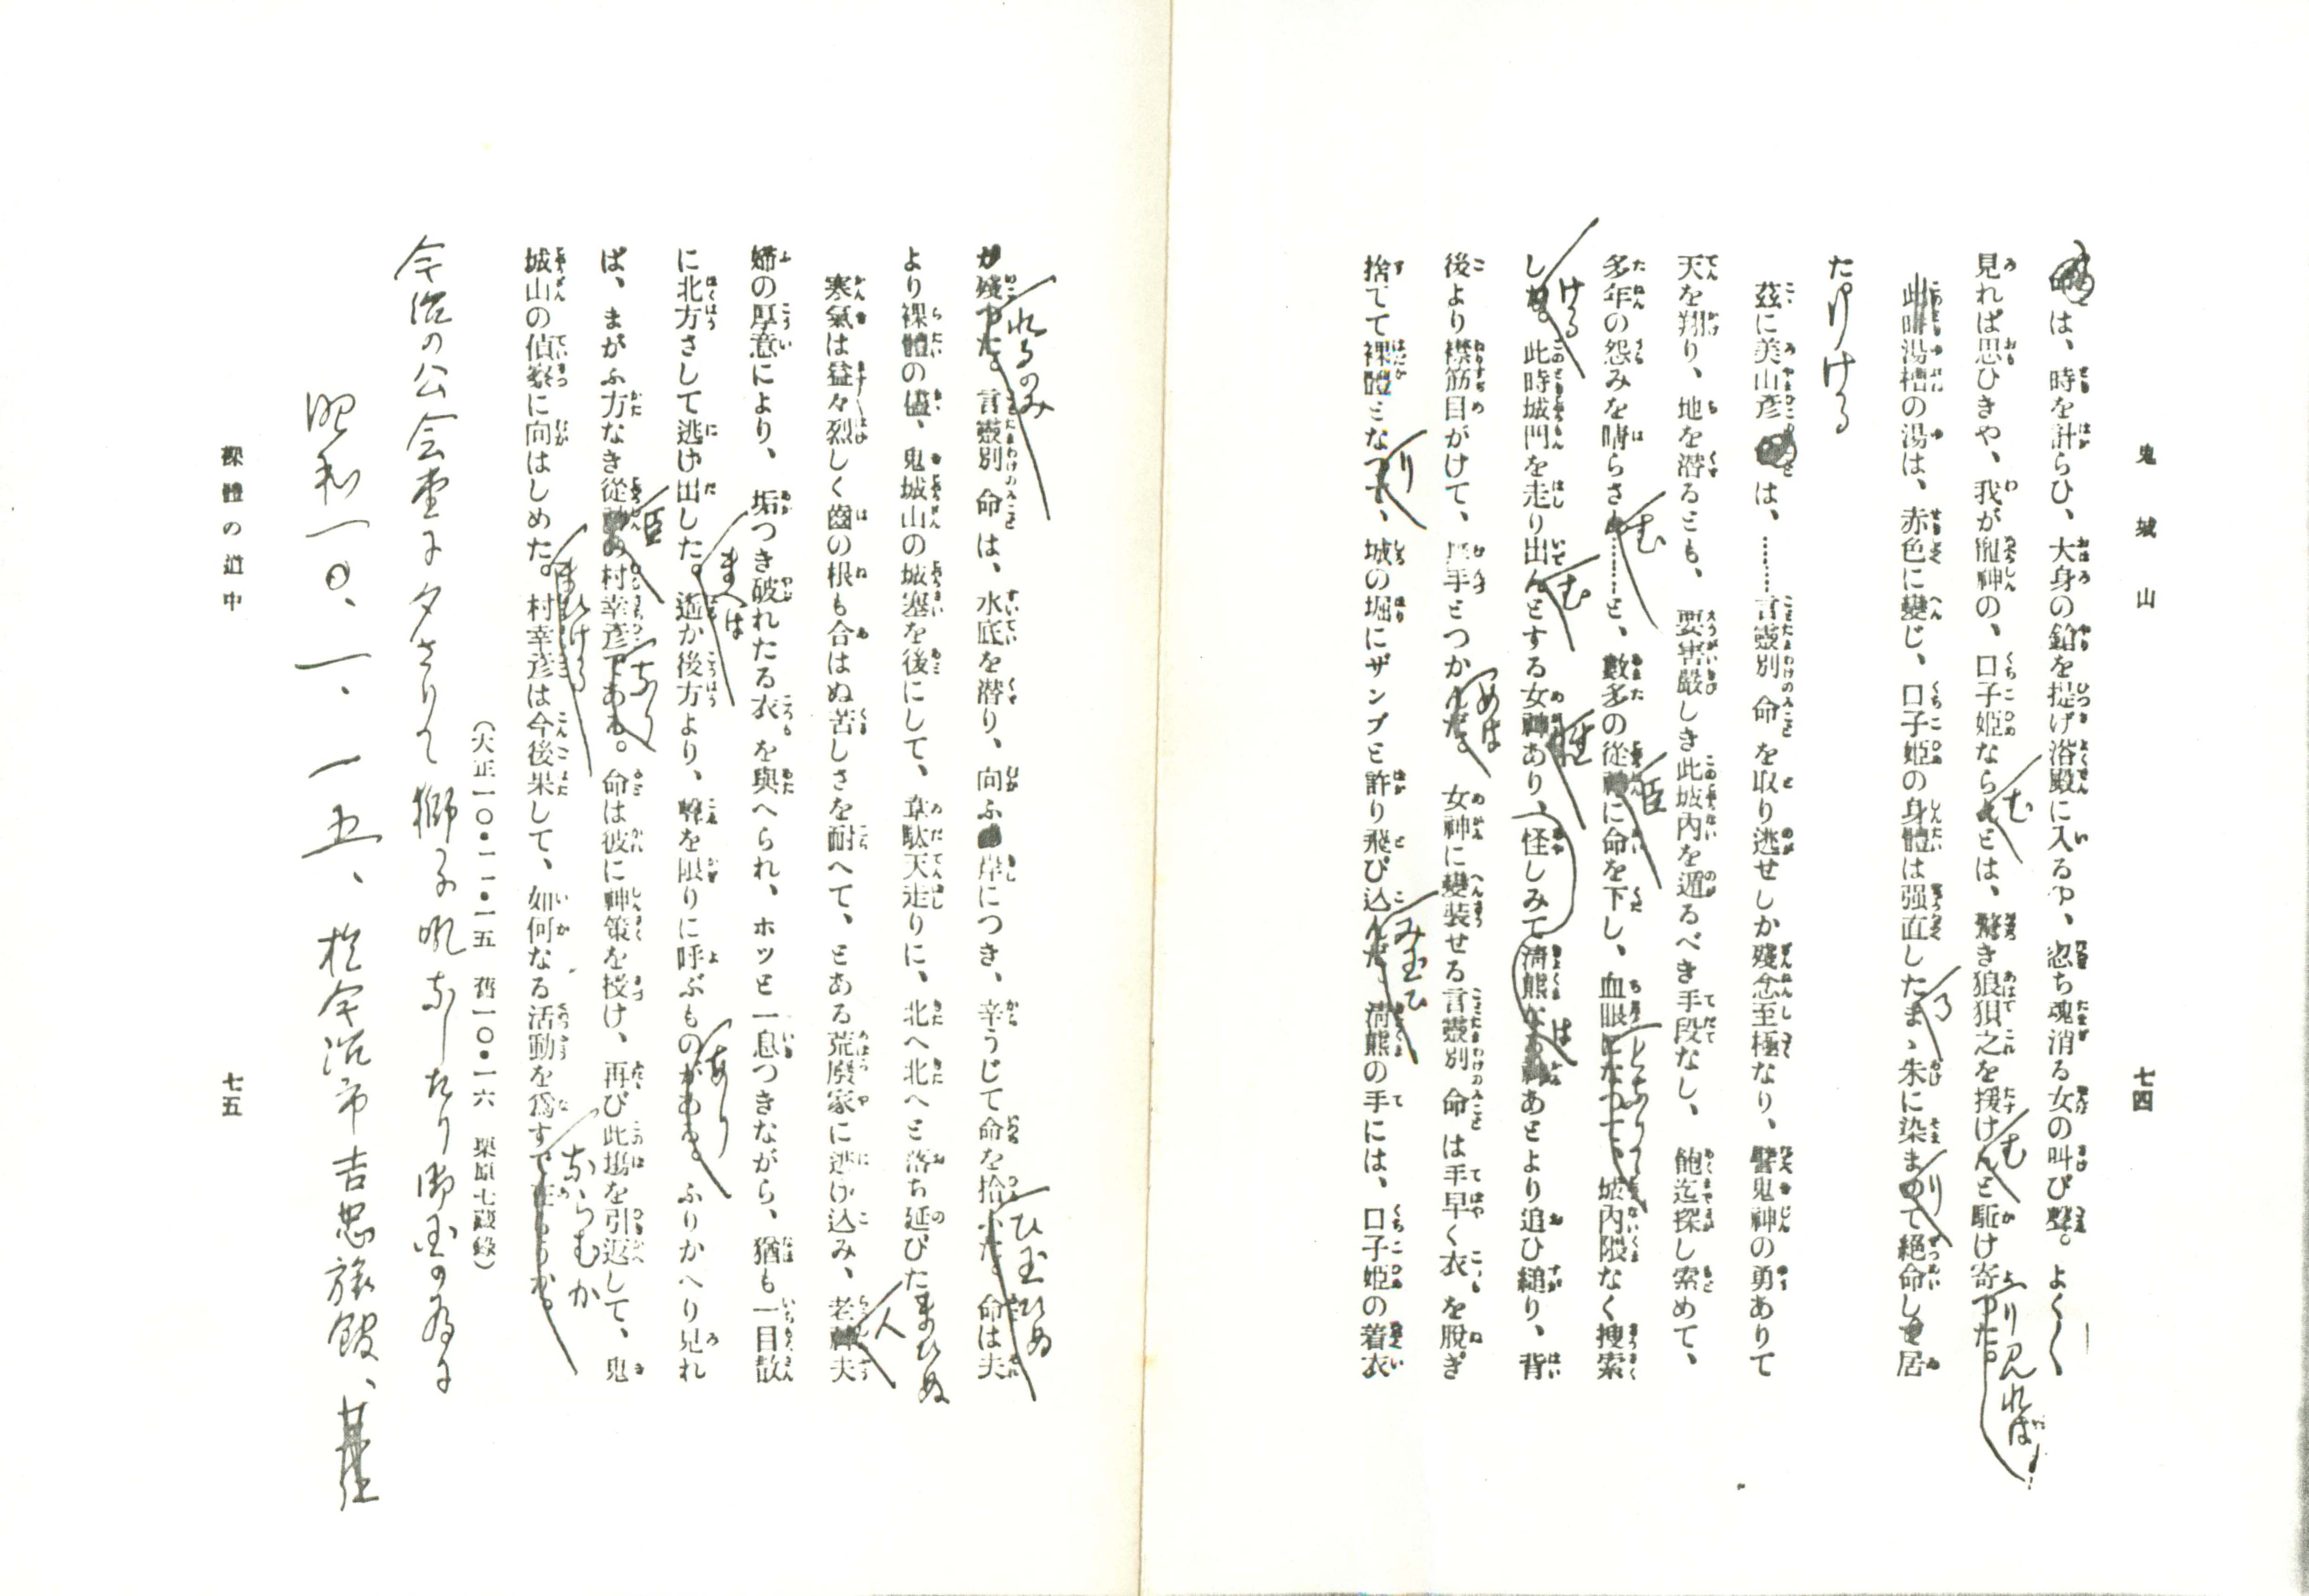 鬼城山
七四
は、時を計らひ、大身の鎗を提げ浴殿に入るや、忽ち魂消る女の叫び聲。よく〱
見れば思ひきや、我が寵神の、口子姫ならむとは、驚き狼狽之を援けむと駈け寄り見れば
湯槽の湯は、赤色に變じ、口子姫の身體は强直したるまゝ朱に染まりて絕命し居
たりける
茲に美山彦は、………言靈別命を取り逃せしか殘念至極なり、譬鬼神の勇ありて
天を翔り、地を潜るとも、要害嚴しき此城內を遁るべき手段なし、飽迄探し索めて、
多年の怨みを晴らさむ………と、數多の從臣に命を下し、血眼となりて城內隈なく搜索
しける 此時城門を走り出むとする女性あり、怪しみて淸熊はあとより追ひ縋り、背
後より襟筋目がけて、無手とつかめば 女神に變裝せる言靈別命は手早く衣を脫ぎ
捨てて裸體となり、城の堀にザンブと許り飛び込み玉ひ 淸熊の手には、口子姫の着衣
殘れるのみ 言靈別命は、水底を潜り、向ふ岸につき、辛うじて命を拾ひ玉ひぬ 命は夫
より裸體の儘、鬼城山の城塞を後にして、韋駄天走りに、北へ北へと落ち延びたまひぬ
寒氣は益々烈しく齒の根も合はぬ苦しさを耐へて、とある荒廢家に逃け込み、老人夫
婦の厚意により、垢つき破れたる衣を與へられ、ホッと一息つきながら、猶も一目散
に北方さして逃け出したまへば 遙か後方より、聲を限りに呼ぶものあり ふりかへり見れ
ば、まがふ方なき從臣の村幸彦なり 命は彼に神策を授け、再び此場を引返して、鬼
城山の偵察に向はしめたまひける 村幸彦は今後果して、如何なる活動を爲すならむか
（大正一〇・一一・一五 舊一〇・一六 栗原七藏錄）
今治の公会堂に夕さりて獅子吼なしたり御国の為に
昭和一〇、一、一五、於今治市吉忠旅館、
裸體の道中
七五